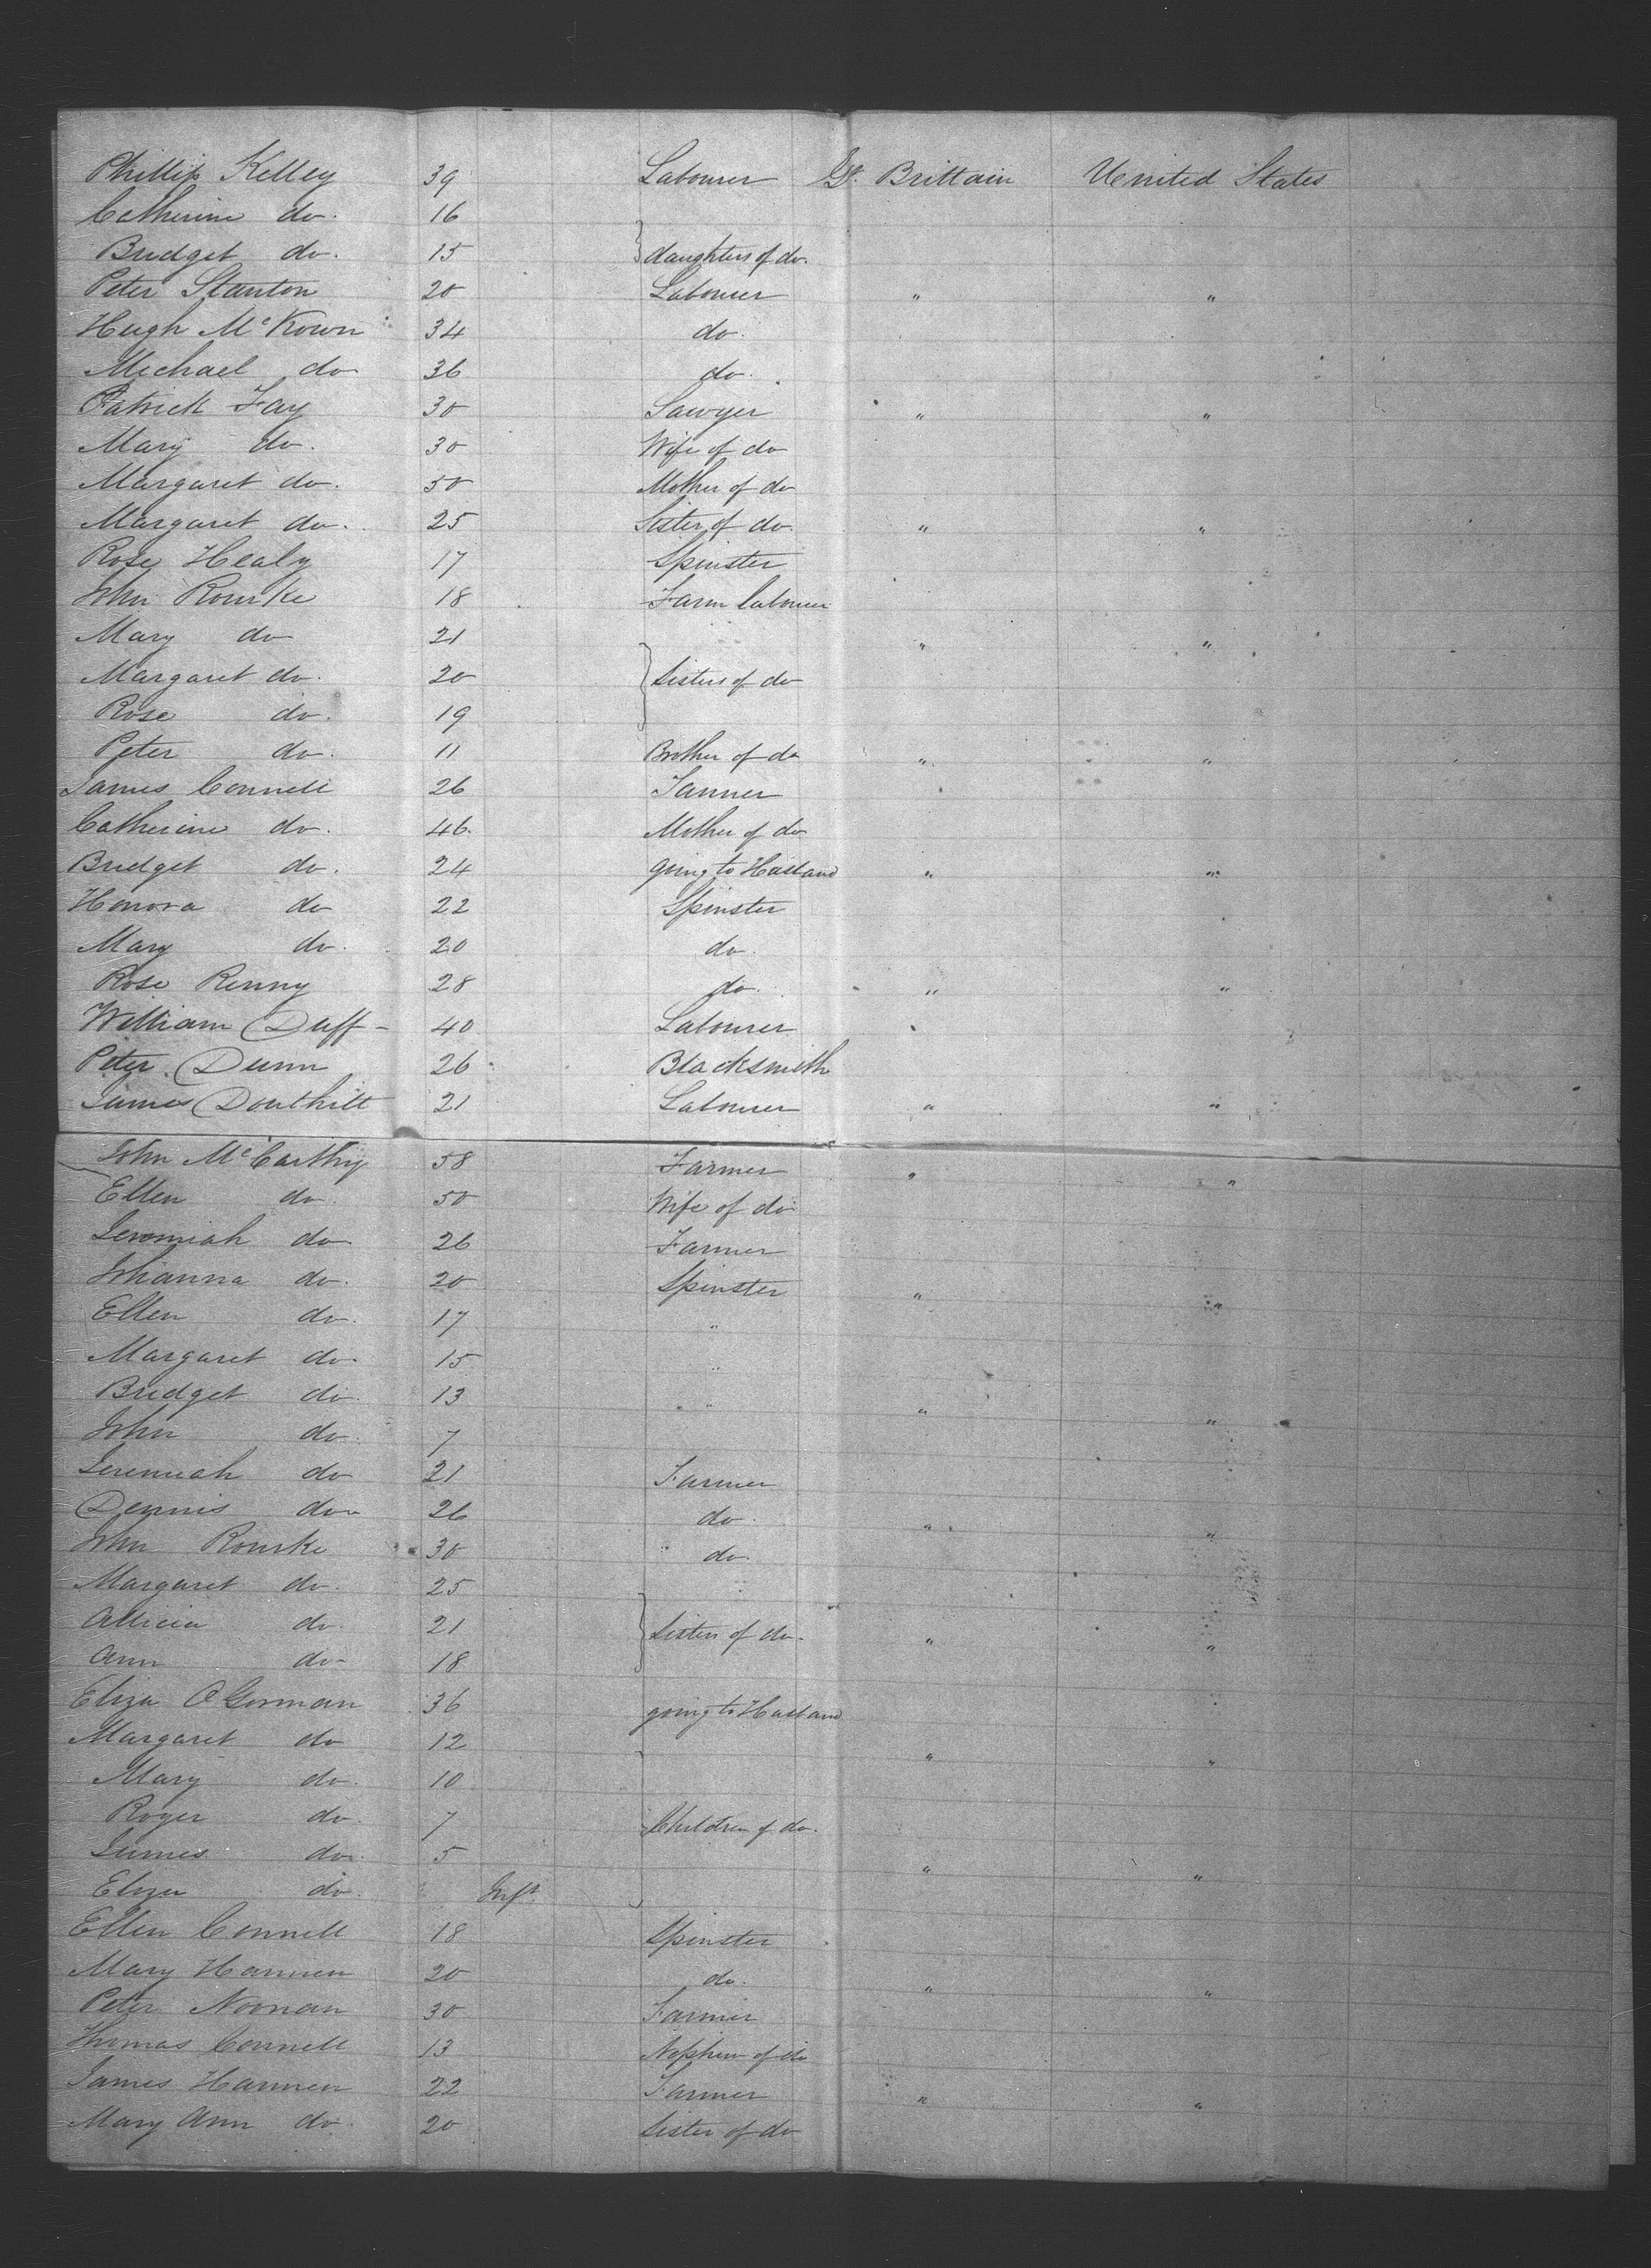 Phillip Kelley 39 Labourer Gt. Brittain United States
Catherine do. 16
Bridget do. 15 } daughters of do.
Peter Stanton 20 Labourer " "
Hugh McKown 34 do.
Michael do 36 do.
Patrick Fay 30 Sawyer " "
Mary do. 30 Wife of do
Margaret do. 50 Mother of do
Margaret do. 25 Sister of do. " "
Rose Healy 17 Spinster
John Rourke 18 Farm labourer
Mary do 21 " "
Margaret do. 20 } Sisters of do
Rose do. 19
Peter do. 11 Brother of do " "
James Connell 26 Tanner
Catherine do. 46. Mother of do
Bridget do. 24 going to Husband " "
Honora do 22 Spinster
Mary do. 20 do.
Rose Renny 28 do. " "
William Duff 40 Labourer
Peter Dunn 26 Blacksmith
James Douthitt 21 Labourer " "
John McCarthy 58 Farmer " "
Ellen do. 50 Wife of do
Jeremiah do 26 Farmer
Johanna do. 20 Spinster " "
Ellen do. 17 "
Margaret do. 15 "
Bridget do. 13 " " "
John do. 7
Jeremiah do 21 Farmer
Dennis do 26 do. " "
John Rourke 30 do.
Margaret do. 25
Allicia do. 21 } Sisters of do. " "
Ann do 18
Eliza O Gorman 36 going to Husband
Margaret do 12 " "
Mary do. 10
Roger do. 7 } Children of do.
James do. 5 " "
Eliza do. Inft.
Ellen Connell 18 Spinster
Mary Hannen 20 do. " "
Peter Noonan 30 Farmer
Thomas Connell 13 Nephew of do
James Hannen 22 Farmer " "
Mary Ann do. 20 Sister of do